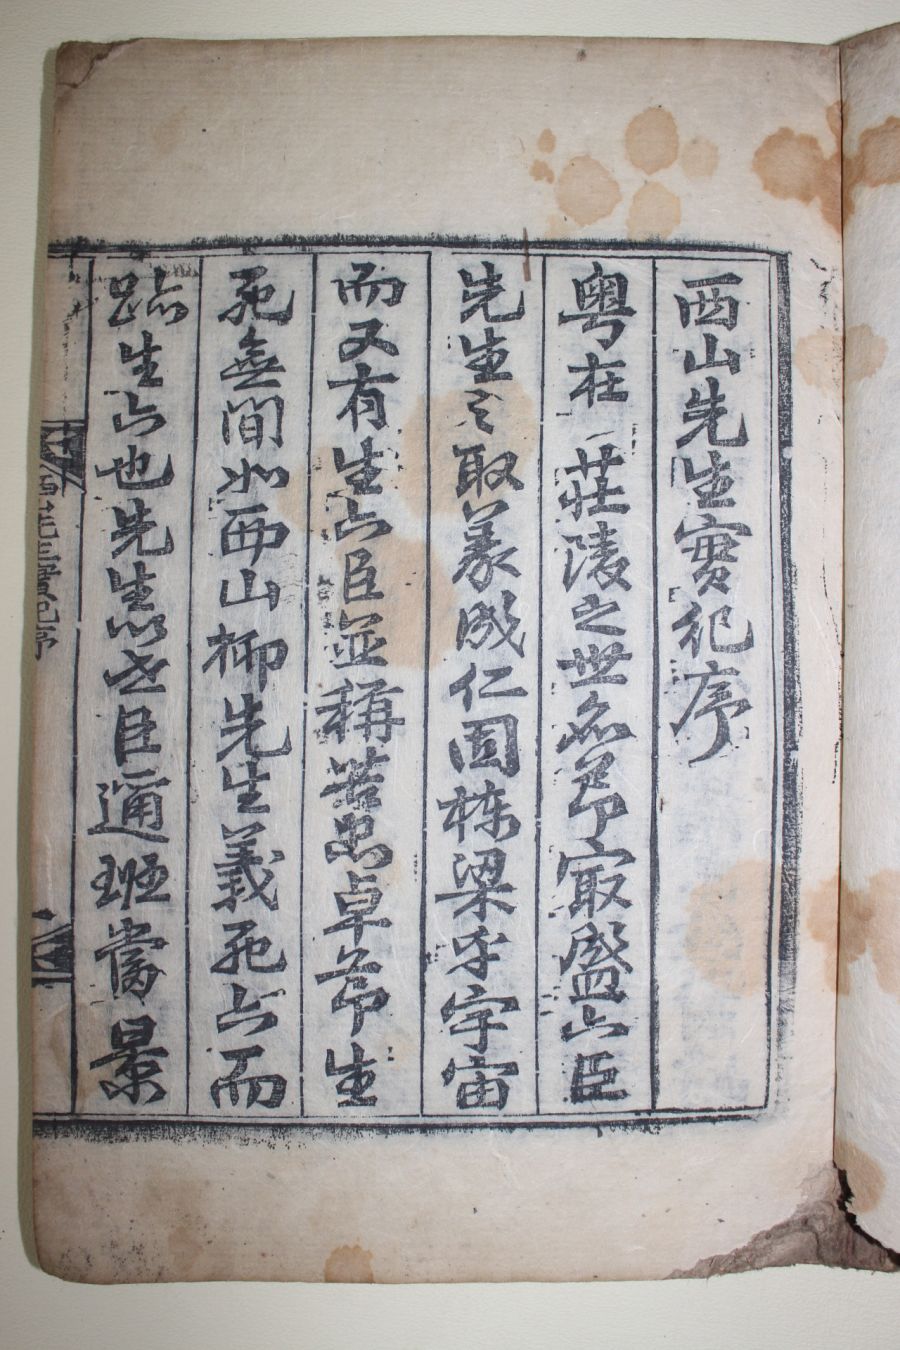 西山先生實紀序
粤在 莊陵之世名節寂盛六臣
先生之取義成仁固棟梁乎宇宙
而又有生六臣並稱苦忠卓節生
死無間如西山柳先生義死六而
跡生六也先生以世臣邇班當景
西山先生實紀序